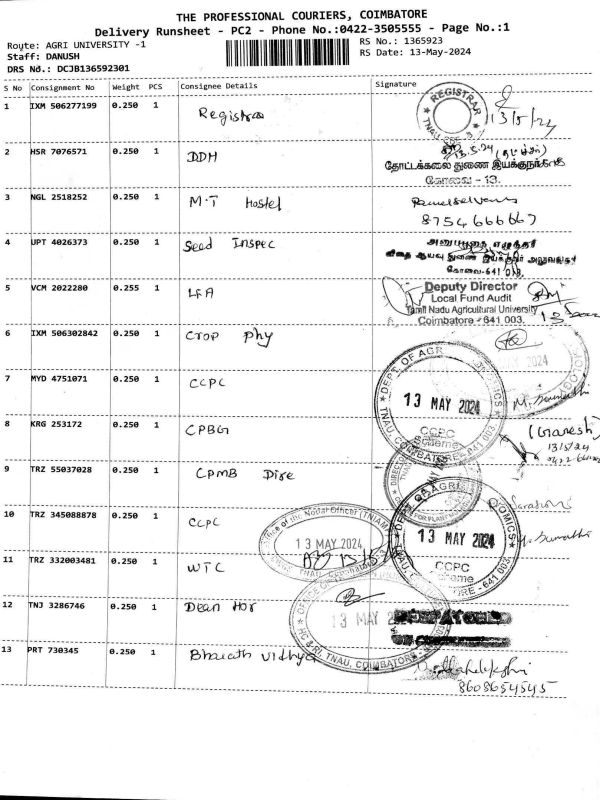 THE PROFESSIONAL COURIERS, COIMBATORE
Delivery Runsheet - PC2 - Phone No.:0422-3505555 - Page No.:1
Route: AGRI UNIVERSITY -1
RS No.: 1365923
Staff: DANUSH
RS Date: 13-May-2024
DRS No.: DCJB136592301
S No Consignment No Weight PCS Consignee Details Signature
1 IXM 506277199 0.250 1 Registrar
REGISTRAR
13/5/24
2 HSR 7076571 0.250 1 DDH
13.5.24
தோட்டக்கலை துணை இயக்குநர்
கோவை - 13.
3 NGL 2518252 0.250 1 M.T Hostel
8754666667
4 UPT 4026373 0.250 1 Seed Inspec
விதை ஆய்வு துணை இயக்குநர்
கோவை-641 013.
5 VCM 2022280 0.255 1 LFA
Deputy Director
Local Fund Audit
Tamil Nadu Agricultural University
Coimbatore - 641 003.
6 IXM 506302842 0.250 1 Crop phy
MAY 2024
7 MYD 4751071 0.250 1 CCPC
DEPT. OF AGRL
13 MAY 2024
CCPC
Scheme
TNAU, COIMBATORE - 641 003
8 KRG 253172 0.250 1 CPBG
(Ganesh)
13/5/24
9 TRZ 55037028 0.250 1 CPMB Dire
10 TRZ 345088878 0.250 1 CCPC
Office of the Nodal Officer (TNIAM)
13 MAY 2024
13 MAY 2024
CCPC
Scheme
11 TRZ 332003481 0.250 1 WTC
12 TNJ 3286746 0.250 1 Dean Hor
13 MAY 2
TNAU, COIMBATORE
13 PRT 730345 0.250 1 Bharath Vidhya
8608654545